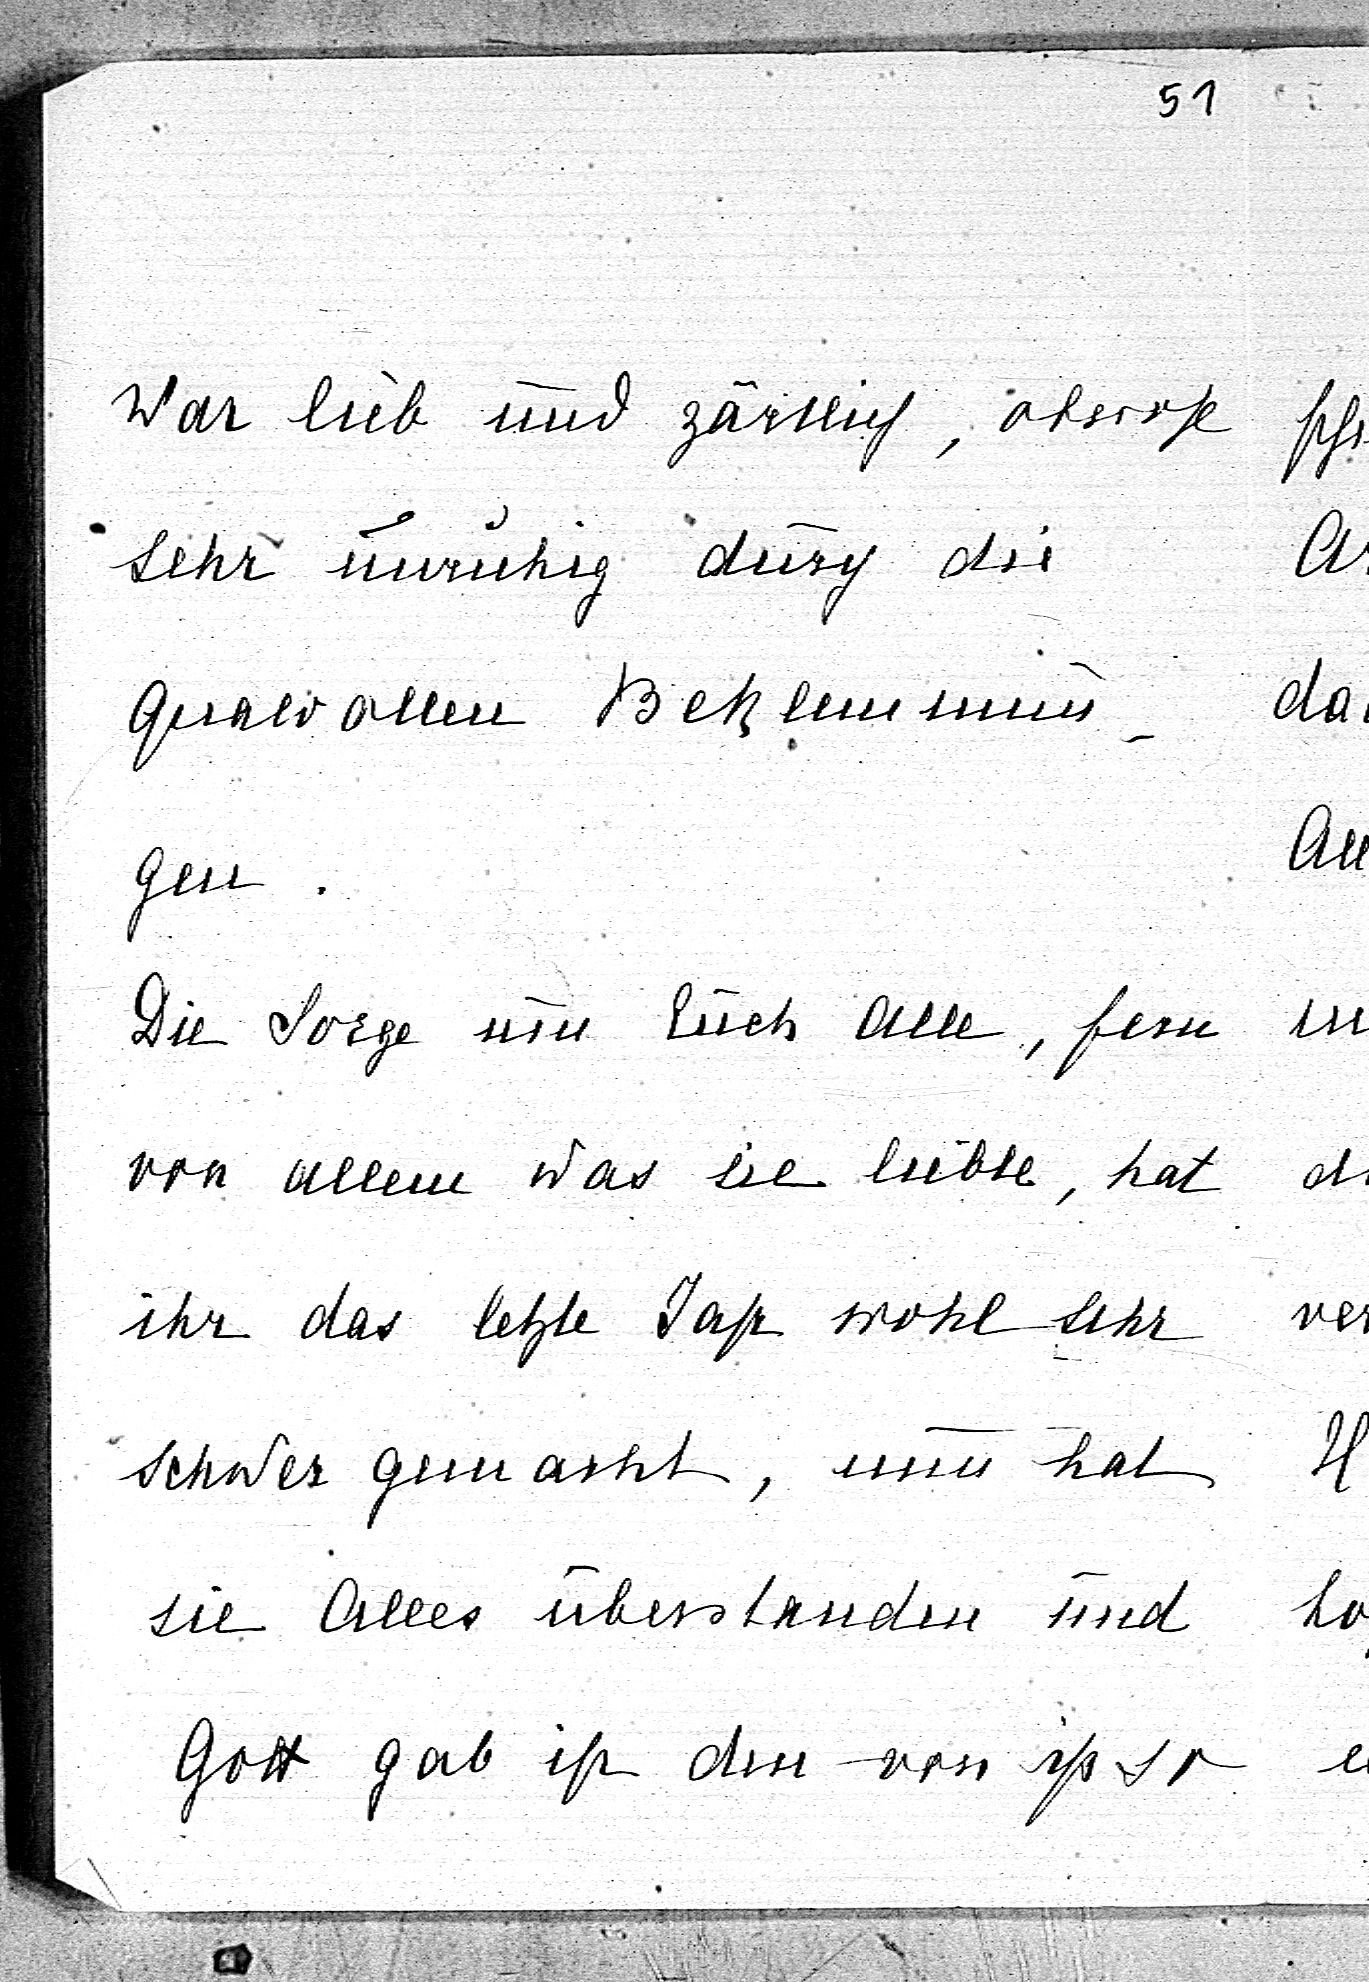 51
war lieb und zärtlich, aber oft
sehr unruhig durch die
qualvollen Beklemmun-
gen.
Die Sorge um Euch Alle, fern
von allem was sie liebte, hat
ihr das letzte Jahr wohl sehr
schwer gemacht, nun hat
sie Alles überstanden und
Gott gab ihr den von ihr so